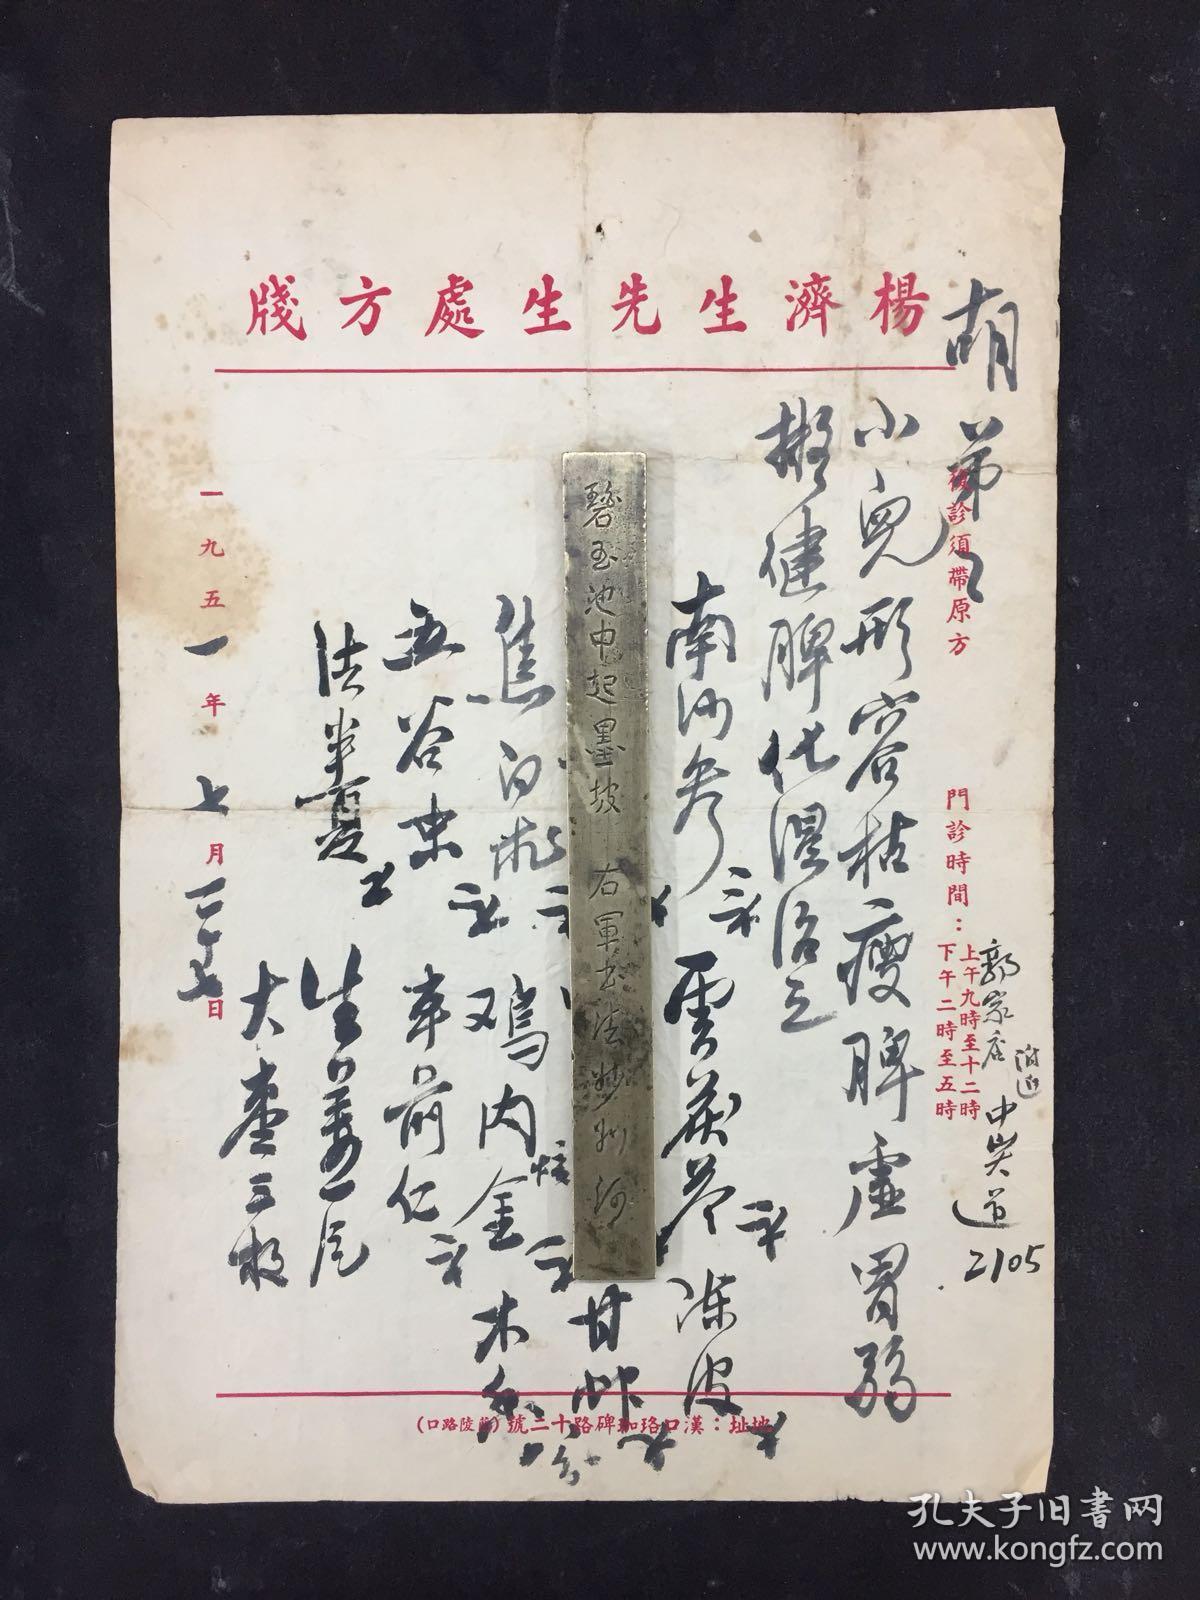 楊濟生先生處方牋
胡弟弟
復診須帶原方
門診時間：上午九時至十二時
下午二時至五時
郭家店
附近
中英道
2105
小兒形容枯瘦脾虛胃弱
擬健脾化濕治之
南沙參 二錢 雲茯苓 二錢 陳皮
碧玉池中起墨坡 右軍書法妙
甘草
焦白朮 鸡内金 炒 木香
五谷虫 車前仁
法半夏 生姜一片
大棗三枚
一九五一年七月二十七日
地址：漢口珞珈碑路十二號(蘭陵路口)
孔夫子旧书网
www.kongfz.com